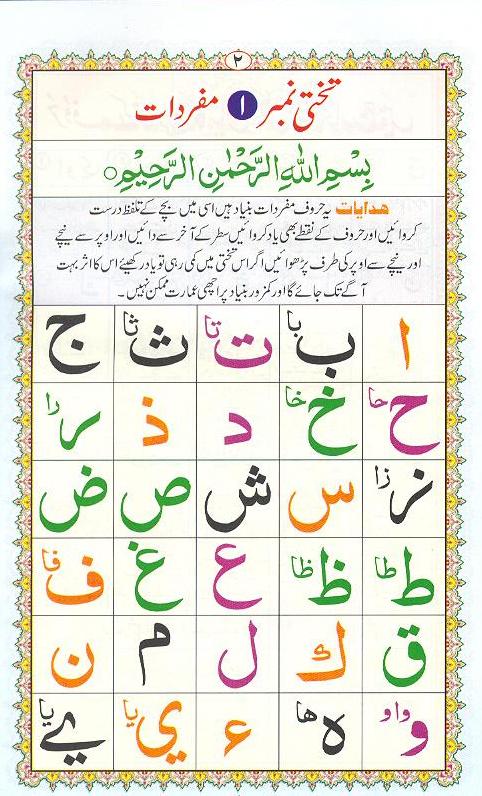 ۲
تختی نمبر ۱ مفردات
بِسْمِ اللهِ الرَّحْمٰنِ الرَّحِيْمِ ○
ھدایات یہ حروف مفردات بنیاد ہیں اسی میں بچے کے تلفظ درست
کروائیں اور حروف کے نقطے بھی یاد کروائیں سطر کے آخر سے دائیں اور اوپر سے نیچے
اور نیچے سے اوپر کی طرف پڑھوائیں اگر اس تختی میں کمی رہی تو یاد رکھیئے اس کا اثر بہت
آگے تک جائے گا اور کمزور بنیاد پر اچھی عمارت ممکن نہیں۔
ا ب با ت تا ث ثا ج
ح حا خ خا د ذ ر را
ز زا س ش ص ض
ط طا ظ ظا ع غ ف فا
ق ك ل م ن
و واو ہ ھا ء ي یا ے یا